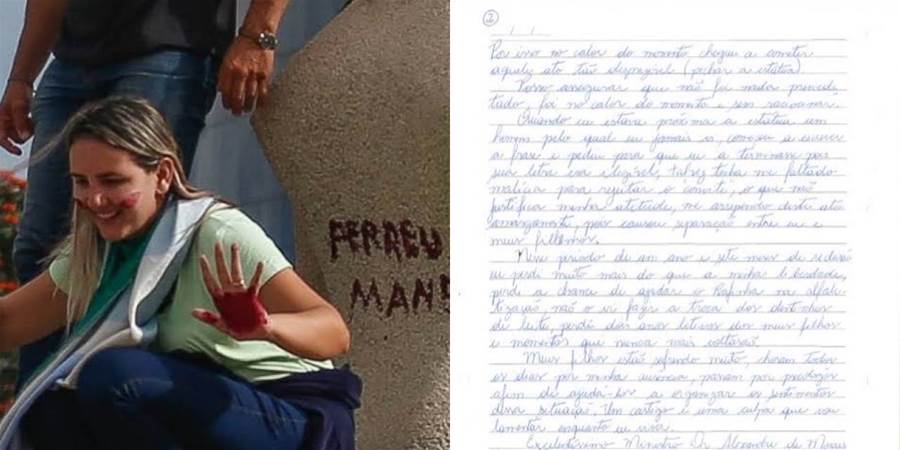 PERDEU
MANÉ
2
Por isso no calor do momento cheguei a cometer
aquele ato tão desprezível (pichar a estátua).
Posso assegurar que não foi nada premedi-
tado, foi no calor do momento e sem raciocinar.
Quando eu estava próxima a estátua um
homem pelo qual eu jamais vi, começou a escrever
a frase e pediu para que eu a terminasse pois
sua letra era ilegível, talvez tenha me faltado
malícia para rejeitar o convite, o que não
justifica minha atitude, me arrependo deste ato
amargamente, pois causou separação entre eu e
meus filhinhos.
Neste período de um ano e sete meses de reclusão
eu perdi muito mais do que a minha liberdade,
perdi a chance de ajudar o Rafinha na alfabe-
tização, não o vi fazer a troca dos dentinhos
de leite, perdi dois anos letivos dos meus filhos
e momentos que nunca mais voltarão.
Meus filhos estão sofrendo muito, choram todos
os dias por minha ausência, passam por psicólogos
afim de ajudá-los a organizar os sentimentos
dessa situação. Um castigo e uma culpa que vou
lamentar enquanto eu viver.
Excelentíssimo Ministro Dr. Alexandre de Moraes